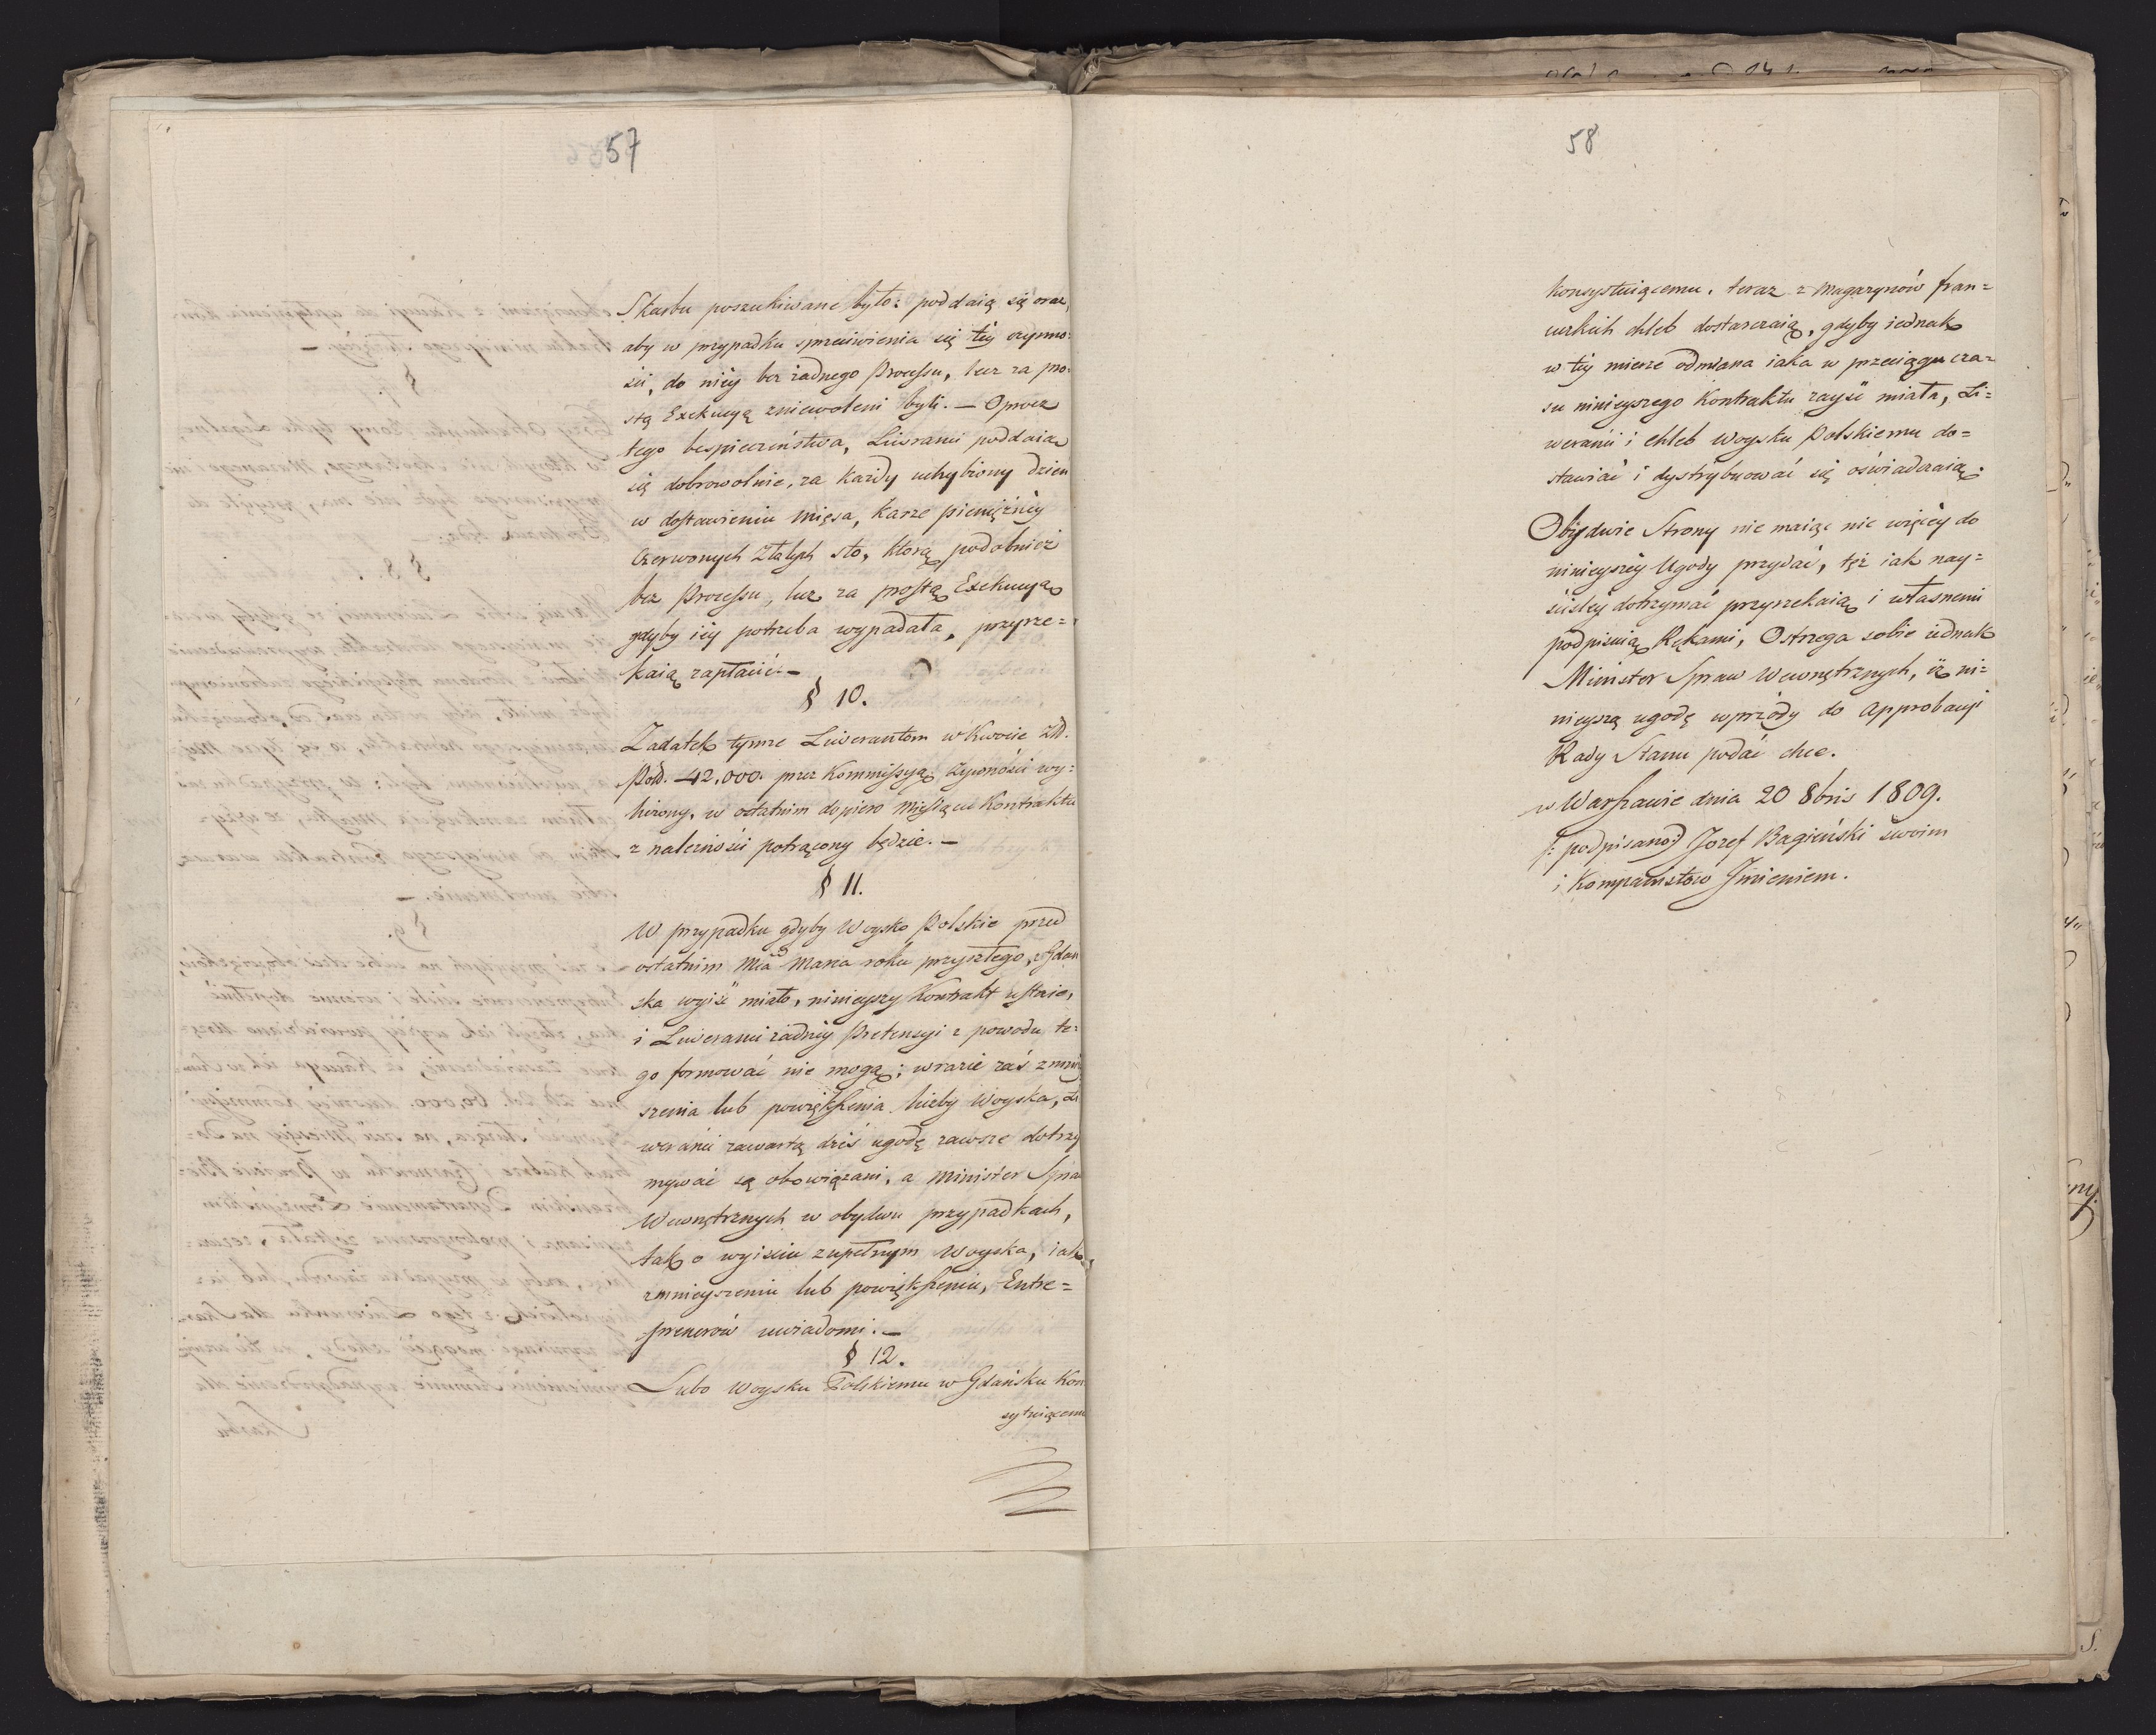 57
Skarbu poszukiwane było: poddaią się oraz,
aby w przypadku sprzeciwienia się téy czynno:
ści, do niéy bez żadnego Processu, lecz za pro:
stą Exekucyą zniewoleni byli. — Oprocz
tego bespieczeństwa, Liweranci poddaią
się dobrowolnie, za każdy uchybiony dzien
w dostawieniu mięsa, karze pienięźnéy
Czerwonych Złałych sto, którą podobnież
bez Processu, lecz za prostą Exekucyą
gdyby iéy potrzeba wypadała, przyrze=
kaią zapłacić. —
§ 10.
Zadatek tymże Liwerantom w kwocie Zł.
Pol. 42,000. przez Kommissyą Żywności wy:
liczony, w ostatnim dopiero Miesiącu Kontraktu
z należności potrącony będzie. —
§ 11.
W przypadku gdyby Woysko Polskie przed
ostatnim Mca Marca roku przyszłego, z Gdan
ska wyiść miało, ninieyszy Kontrakt ustaie,
i Liweranci żadnéy Pretensyi z powodu te:
go formować nie mogą; w razie zaś zmniey
szenia lub powiększenia liczby Woyska, Li
weranci zawartą dziś ugodę zawsze dotrzy
mywać są obowiązani, a Minister Spraw
Wewnętrznych w obydwu przypadkach,
tak o wyiściu zupełnym Woyska, iak
zmnieyszeniu lub powiększeniu, Entre=
prenerów uwiadomi. —
§ 12.
Lubo Woysku Polskiemu w Gdańsku Kon
systuiącemu
58
konsystuiącemu, teraz z Magazynów fran=
cuzkich chleb dostarczaią, gdyby iednak
w téy mierze odmiana iaka w przeciągu cza=
su ninieyszego Kontraktu zayść miała, Li=
weranci i chleb Woysku Polskiemu do=
stawiać i dystrybuować się oświadczaią.
Obydwie Strony nie maiąc nic więcéy do
ninieyszéy Ugody przydać, tęż iak nay=
ściśléy dotrzymać przyrzekaią i własnemi
podpisuią Rękami, Ostrzega sobie iednak
Minister Spraw Wewnętrznych, iż ni=
nieyszą ugodę wprzódy do Approbacyi
Rady Stanu podać chce.
w Warszawie dnia 20 8bris 1809.
/: podpisano:/ Jozef Bagieński swoim
i Kompanistów Jmieniem.